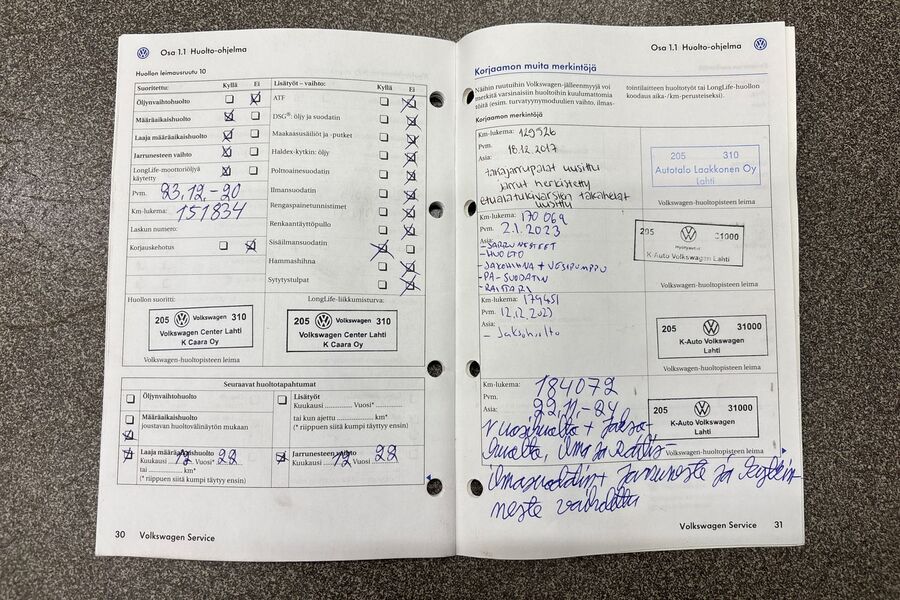 Osa 1.1 Huolto-ohjelma
Huollon leimausruutu 10
Suoritettu: Kyllä Ei
Öljynvaihtohuolto
Määräaikaishuolto
Laaja määräaikaishuolto
Jarrunesteen vaihto
LongLife-moottoriöljyä
käytetty
Pvm. 23.12-20
Km-lukema: 151834
Laskun numero:
Korjauskehotus
Lisätyöt – vaihto: Kyllä Ei
ATF
DSG®: öljy ja suodatin
Maakaasusäiliöt ja -putket
Haldex-kytkin: öljy
Polttoainesuodatin
Ilmansuodatin
Rengaspainetunnistimet
Renkaantäyttöpullo
Sisäilmansuodatin
Hammashihna
Sytytystulpat
Huollon suoritti:
205 Volkswagen 310
Volkswagen Center Lahti
K Caara Oy
Volkswagen-huoltopisteen leima
LongLife-liikkumisturva:
205 Volkswagen 310
Volkswagen Center Lahti
K Caara Oy
Volkswagen-huoltopisteen leima
Seuraavat huoltotapahtumat
Öljynvaihtohuolto
Määräaikaishuolto
joustavan huoltovälinäytön mukaan
Laaja määräaikaishuolto
Kuukausi 12 Vuosi* 22
tai km*
(* riippuen siitä kumpi täyttyy ensin)
Lisätyöt
Kuukausi Vuosi*
tai kun ajettu km*
(* riippuen siitä kumpi täyttyy ensin)
Jarrunesteen vaihto
Kuukausi 12 Vuosi 22
30 Volkswagen Service
Osa 1.1 Huolto-ohjelma
Korjaamon muita merkintöjä
Näihin ruutuihin Volkswagen-jälleenmyyjä voi
merkitä varsinaisiin huoltoihin kuulumattomia
töitä (esim. turvatyynymoduulien vaihto, ilmas-
tointilaitteen huoltotyöt tai LongLife-huollon
koodaus aika-/km-perusteiseksi).
Korjaamon merkintöjä
Km-lukema: 129526
Pvm. 18.12.2017
Asia:
takajarrupalat uusittu
jarrut herkistetty
etualatukivarsien takahelat
uusittu
205 310
Autotalo Laakkonen Oy
Lahti
Volkswagen-huoltopisteen leima
Km-lukema: 170 069
Pvm. 2.1.2023
Asia:
- JARRUNESTEET
- HUOLTO
- JAKOHIHNA + VESIPUMPPU
- PA-SUODATIN
- RAITARI
205 31000
K-Auto Volkswagen Lahti
Volkswagen-huoltopisteen leima
Km-lukema: 179451
Pvm. 12.12.2023
Asia:
- Jaksohuolto
31000
K-Auto Volkswagen
Lahti
Volkswagen-huoltopisteen leima
Km-lukema: 184072
Pvm. 22.11.-24
Asia:
Vuosihuolto + Jakso-
huolto,
205 31000
K-Auto Volkswagen
Lahti
Volkswagen-huoltopisteen leima
ilmasuodatin + jarruneste ja
neste vaihdettu
Volkswagen Service 31